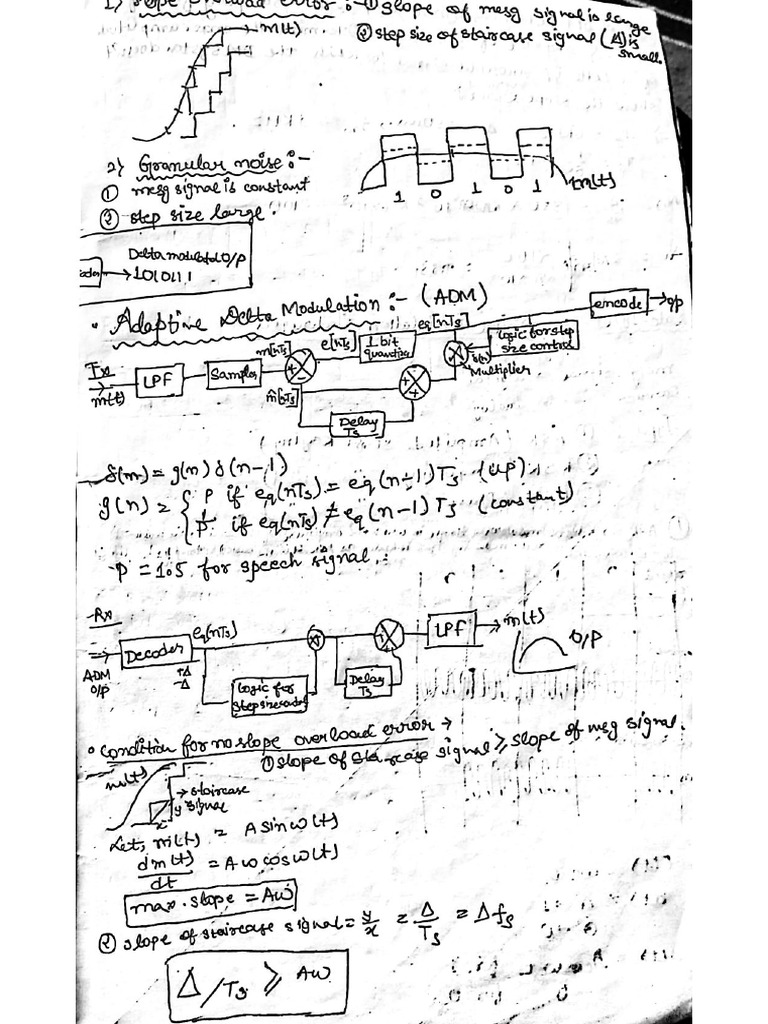 1) slope overload error :- ① slope of mesg signal is large
② step size of staircase signal (Δ) is small.
m(t)
2) Granular noise :-
① mesg signal is constant
② step size large.
1 0 1 0 1
m(t)
Delta modulated O/P
→ 1010111
• Adaptive Delta Modulation :- (ADM)
Tx
m(t)
LPF
Sampler
m[nTs]
e[nTs]
1 bit quantizer
eq[nTs]
encode
→ O/P
Logic for step size control
Multiplier
m̂[nTs]
Delay Ts
δ(n) = g(n) δ(n-1)
g(n) = { P if eq(nTs) = eq(n-1)Ts (up)
1/P if eq(nTs) ≠ eq(n-1)Ts (constant)
P = 1.5 for speech signal.
Rx
ADM O/P
Decoder
+Δ
-Δ
eq(nTs)
Logic for step size control
Delay Ts
LPF
→ m(t)
O/P
• Condition for no slope overload error →
① slope of staircase signal ⩾ slope of msg signal.
m(t)
→ staircase signal
y
x
Let, m(t) = A sin ω(t)
dm(t)/dt = Aω cos ω(t)
max. slope = Aω
② slope of staircase signal = y/x = Δ/Ts = Δfs
Δ/Ts ⩾ Aω